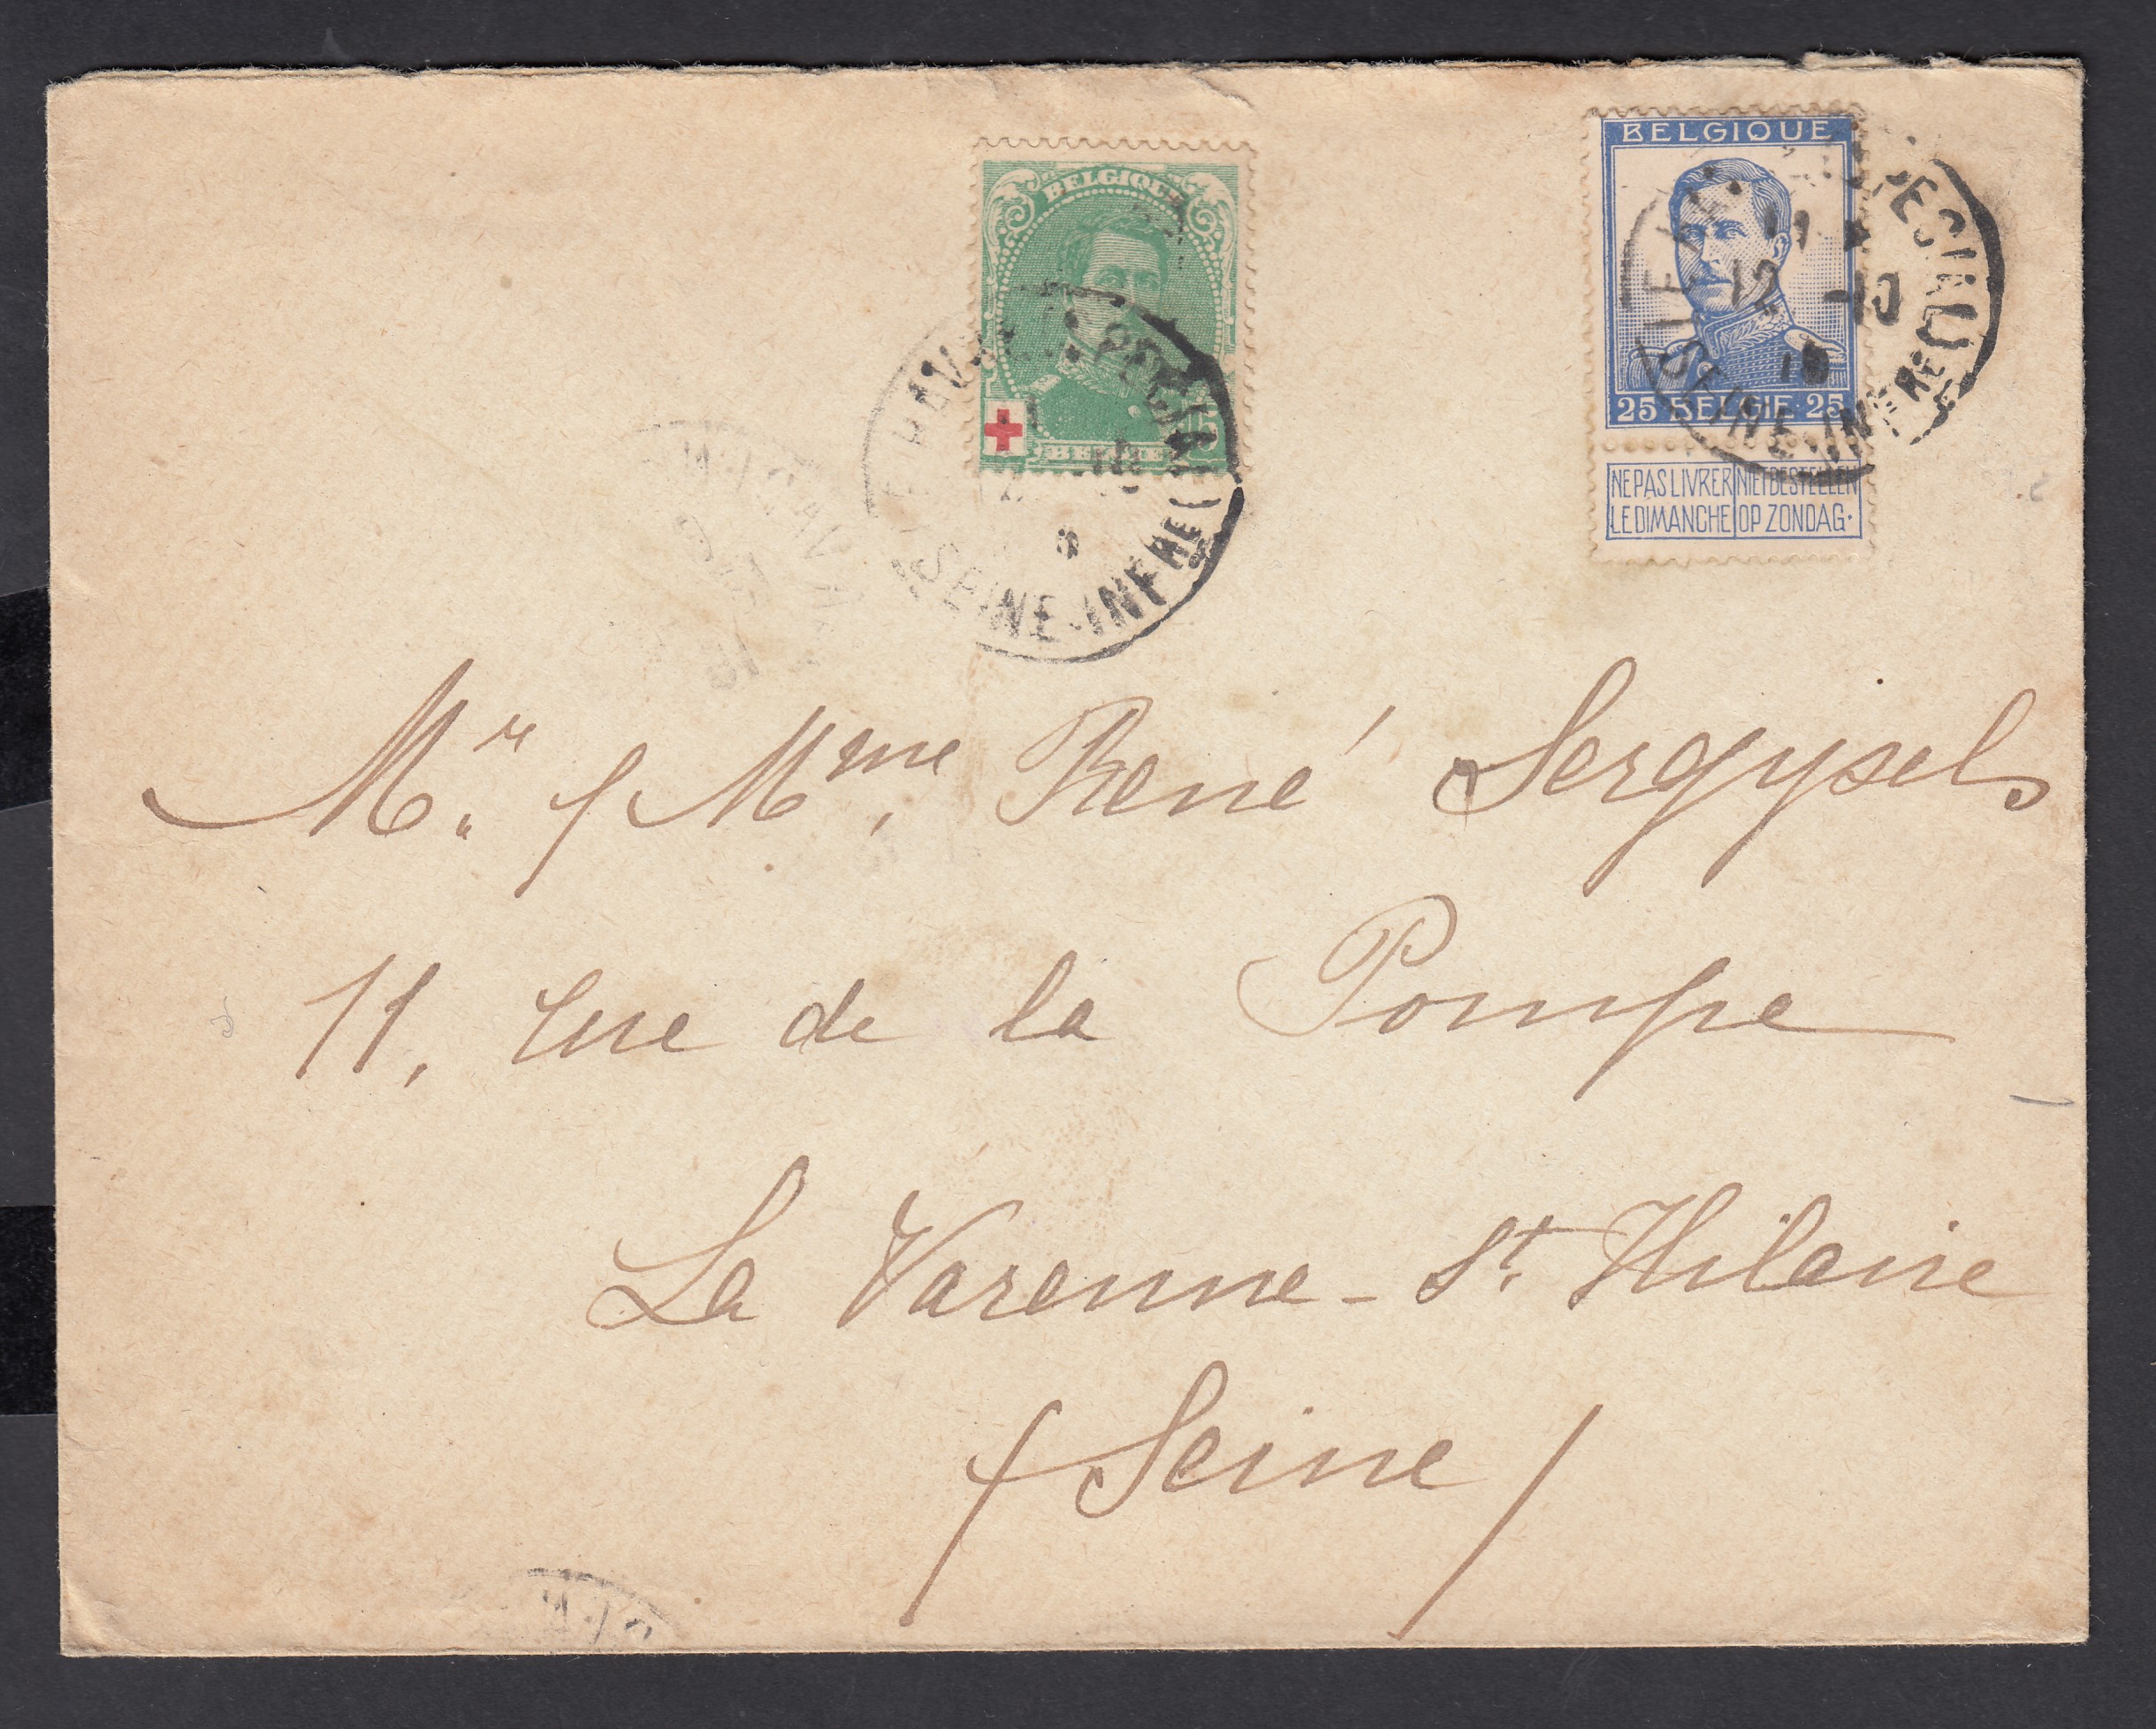 BELGIQUE
BELGIË
5
BELGIQUE
25 BELGIË 25
NE PAS LIVRER NIET BESTELLEN
LE DIMANCHE OP ZONDAG.
SPECIAL
SEINE-INFRE
12 -10
SEINE-INFRE
Mr. & Mme, René Sergysels
11, rue de la Pompe
La Varenne - St. Hilaire
(Seine)